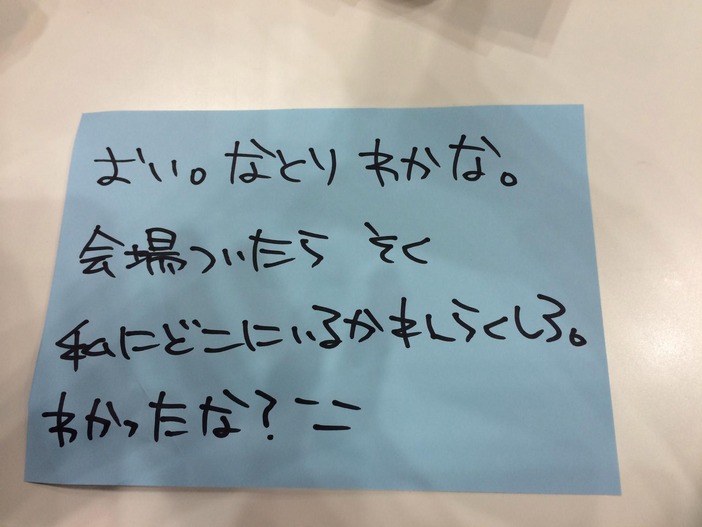 おい。なとりわかな。
会場ついたら そく
私にどこにいるかれんらくしろ。
わかったな?ニニ